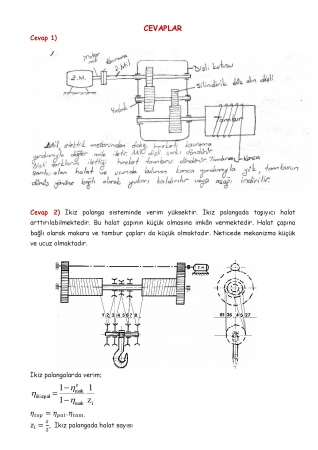 CEVAPLAR
Cevap 1)
1.
motor mili
kavrama
2. Mil
Dişli kutusu
E.M.
silindirik düz alın dişli
Yatak
Tambur
Mil, elektrik motorundan aldığı hareketi kavrama
yardımıyla diğer mile iletir. Mil dişli çarkı döndürür.
Dişli birbirine ilettiği hareketi tamburu döndürür. Tambura
sarılı olan halat ve ucunda bulunan kanca yardımıyla yük, tamburun
dönüş yönüne bağlı olarak yukarı kaldırılır veya aşağı indirilir.
Kanca
Cevap 2) İkiz palanga sisteminde verim yüksektir. İkiz palangada taşıyıcı halat
arttırılabilmektedir. Bu halat çapının küçük olmasına imkân vermektedir. Halat çapına
bağlı olarak makara ve tambur çapları da küçük olmaktadır. Neticede mekanizma küçük
ve ucuz olmaktadır.
E.M
1 2 3 4 5 6 7 8
İkiz palangalarda verim;
η_ikizpal = (1 − η_mak^z) / (1 − η_mak) · 1/z_i
η_top = η_pal . η_tam.
z_i = z/2. İkiz palangada halat sayısı